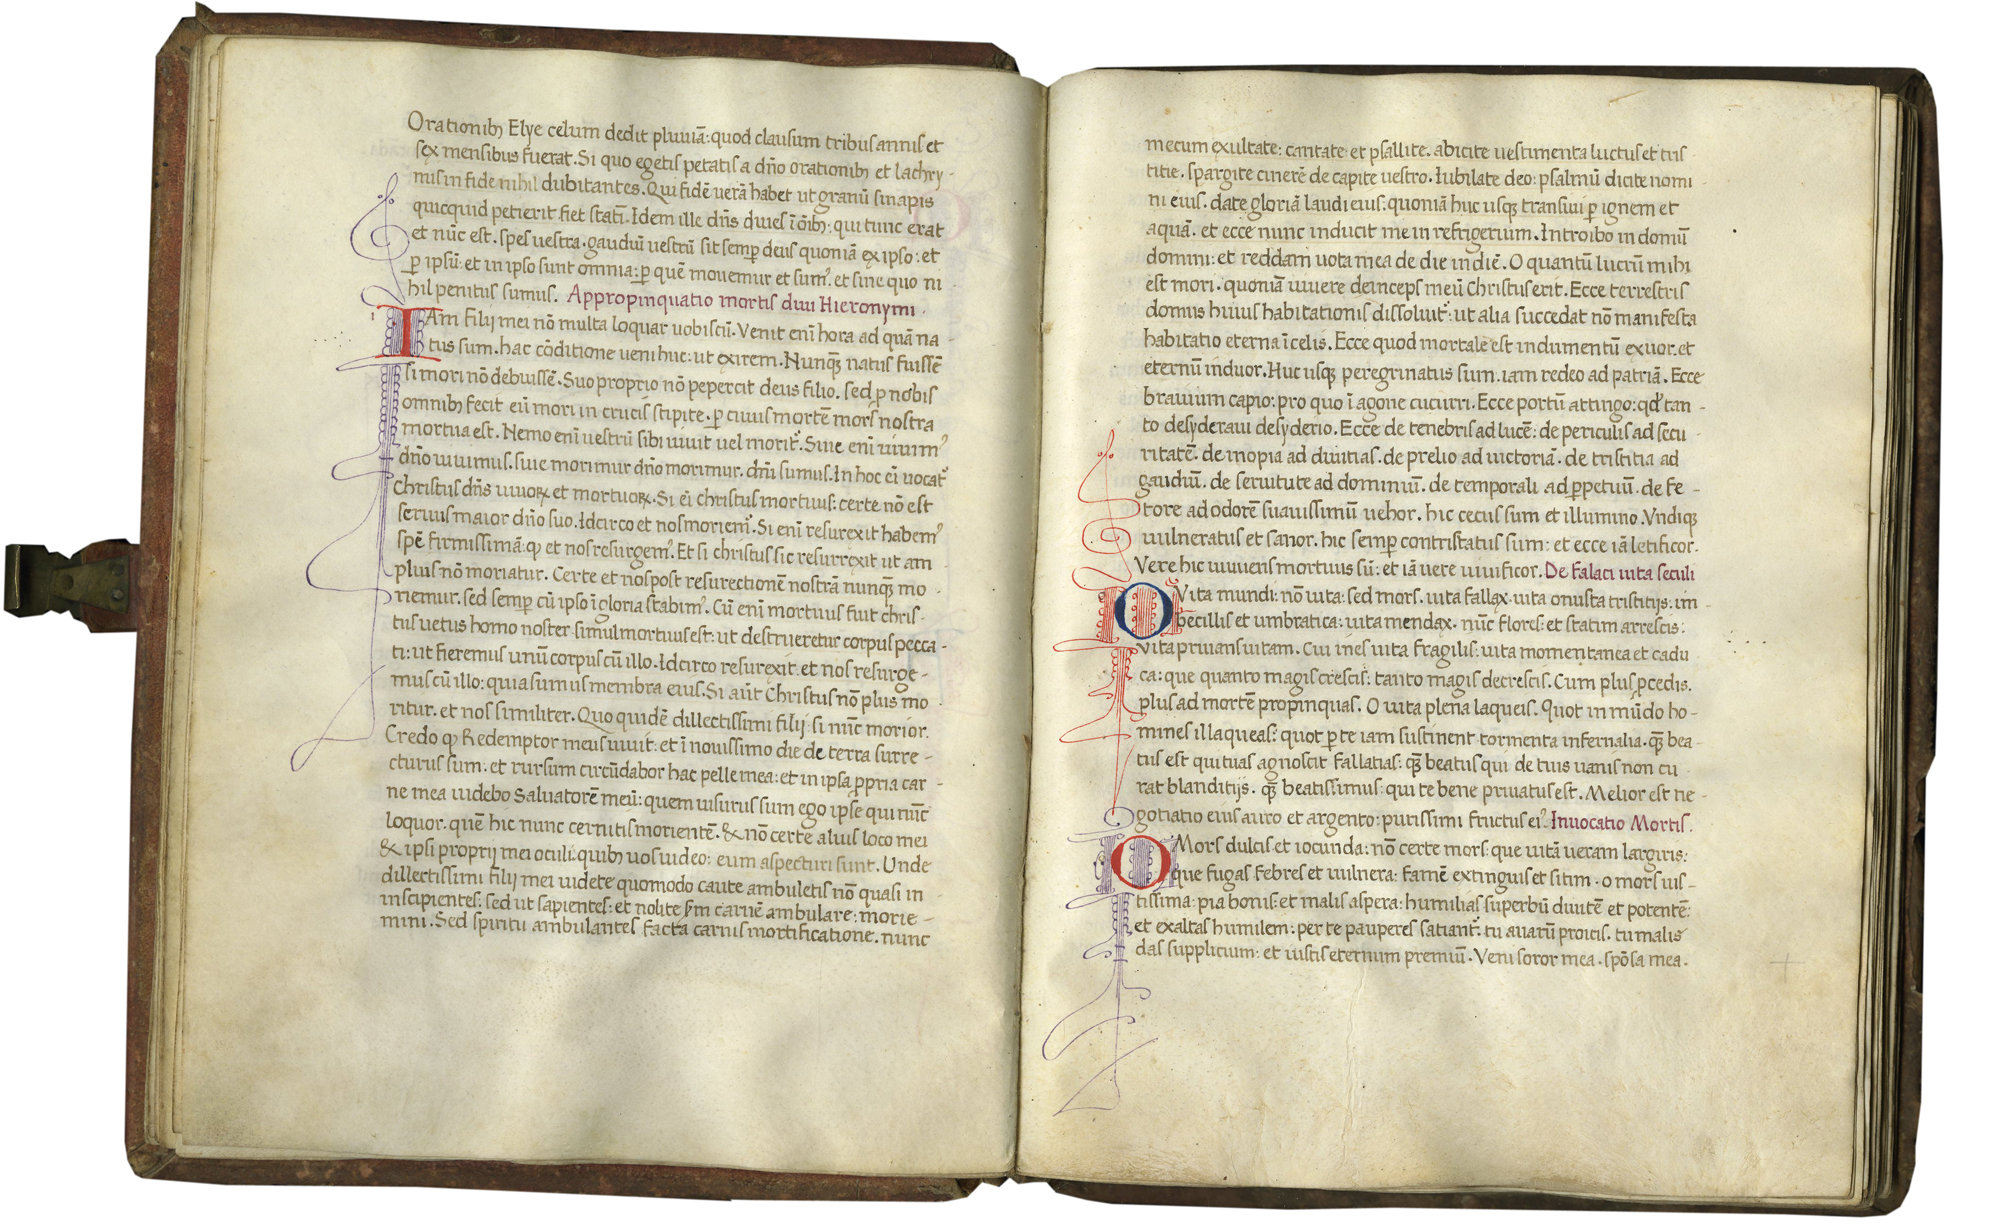 Orationibꝫ Elye celum dedit pluuiā: quod clausum tribus annis et
sex mensibus fuerat. Si quo egetis petatis a dño orationibꝫ et lachry-
mis in fide nihil dubitantes. Qui fidē uerā habet ut granū sinapis
quicquid petierit fiet statī. Idem ille dñs diues ī oībꝫ: qui tunc erat
et nūc est. spes uestra. gaudiū uestrū sit semꝑ deus quoniā ex ipso: et
ꝑ ipsū: et in ipso sunt omnia: ꝑ quē mouemur et sumꝰ. et sine quo ni
hil penitus sumus. Appropinquatio mortis diui Hieronymi.
IAm filij mei nō multa loquar uobiscū. Venit enī hora ad quā na
tus sum. hac cōditione ueni huc: ut exirem. Nunqꝫ natus fuissē
si mori nō debuissē. Suo proprio nō pepercit deus filio. sed p nobis
omnibꝫ fecit eū mori in crucis stipite. ꝑ cuius mortē mors nostra
mortua est. Nemo enī uestrū sibi uiuit uel moritꝰ. Siue enī uiuimꝰ
dño uiuimus. siue morimur dño morimur. dnī sumus. In hoc eī uocatꝰ
Christus dñs uiuoꝝ et mortuoꝝ. Si eī christus mortuus: certe nō est
seruus maior dño suo. Idcirco et nos moriemꝰ. Si enī resurexit habemꝰ
spē firmissimā: ꝙ et nos resurgemꝰ. Et si christus sic resurrexit ut am
plius nō moriatur. Certe et nos post resurectionē nostrā nunqꝫ mo
riemur. sed semꝑ cū ipso ī gloria stabimꝰ. Cū enī mortuus fuit chris-
tus uetus homo noster simul mortuus est: ut destrueretur corpus pecca-
ti: ut fieremus unū corpus cū illo. Idcirco resurexit et nos resurge-
mus cū illo: quia sumus membra eius. Si aūt Christus nō plus mo
ritur. et nos similiter. Quo quidē dillectissimi filij si nūc morior.
Credo ꝙ Redemptor meus uiuit: et ī nouissimo die de terra surre-
cturus sum: et rursum circūdabor hac pelle mea: et in ipsa ꝓpria car-
ne mea uidebo Saluatorē meū: quem uisurus sum ego ipse qui nūc
loquor. quē hic nunc cernitis morientē. & nō certe alius loco mei
& ipsi proprij mei oculi quibꝫ uos uideo: eum aspecturi sunt. Unde
dillectissimi filij mei uidete quomodo caute ambuletis nō quasi in-
inscipientes: sed ut sapientes: et nolite scđm carnē ambulare: morie-
mini. Sed spiritu ambulantes facta carnis mortificatione. nunc
mecum exultate: cantate et psallite. abicite uestimenta luctus et tris-
titie. spargite cinerē de capite uestro. Iubilate deo: psalmū dicite nomi-
ni eius. date gloriā laudi eius: quoniā huc usqꝫ transiui ꝑ ignem et
aquā. et ecce nunc inducit me in refrigerium. Introibo in domū
domini: et reddam uota mea de die in diē. O quantū lucrū mihi
est mori. quoniā uiuere deinceps meū christus erit. Ecce terrestris
domus huius habitationis dissoluitꝰ: ut alia succedat nō manifesta
habitatio eterna ī celis. Ecce quod mortale est indumentū exuor. et
eternū induor. Huc usqꝫ peregrinatus sum. iam redeo ad patriā. Ecce
brauium capio: pro quo ī agone cucurri. Ecce portū attingo: qđ tan-
to desyderaui desyderio. Ecce de tenebris ad lucē: de periculis ad secu
ritatē. de inopia ad diuitias. de prelio ad uictoriā. de tristitia ad
gaudiū. de seruitute ad dominiū. de temporali ad ꝑpetuū. de fe-
tore ad odorē suauissimū uehor. hic cecus sum et illumino. Vndiqꝫ
uulneratus et sanor. hic semꝑ contristatus sum: et ecce iā letificor.
Vere hic uiuens mortuus sū: et iā uere uiuificor. De fallaci uita seculi
O Vita mundi: nō uita: sed mors. uita fallax. uita onusta tristitijs: im
becillis et umbratica: uita mendax. nūc flores: et statim arrescis:
Vita priuans uitam. Cui ines uita fragilis: uita momentanea et cadu
ca: que quanto magis crescis: tanto magis decrescis. Cum plus ꝓcedis.
plus ad mortē propinquas. O uita plena laqueis. Quot in mūdo ho-
mines illaqueas: quot ꝑ te iam sustinent tormenta infernalia. qꝫ bea-
tus est qui tuas agnoscit fallatias: qꝫ beatus qui de tuis uanis non cu-
rat blanditijs. qꝫ beatissimus: qui te bene priuatus est. Melior est ne-
gotiatio eius auro et argento: purissimi fructus eiꝰ. Inuocatio Mortis.
O Mors dulcis et iocunda: nō certe mors: que uitā ueram largiris:
que fugas febres et uulnera: famē extinguis et sitim. o mors ius-
tissima: pia bonis: et malis aspera: humilias superbū diuitē et potentē:
et exaltas humilem: per te pauperes satiantꝰ: tu auarū proicis. tu malis
das supplicium: et iustis eternum premiū. Veni soror mea. spōsa mea.